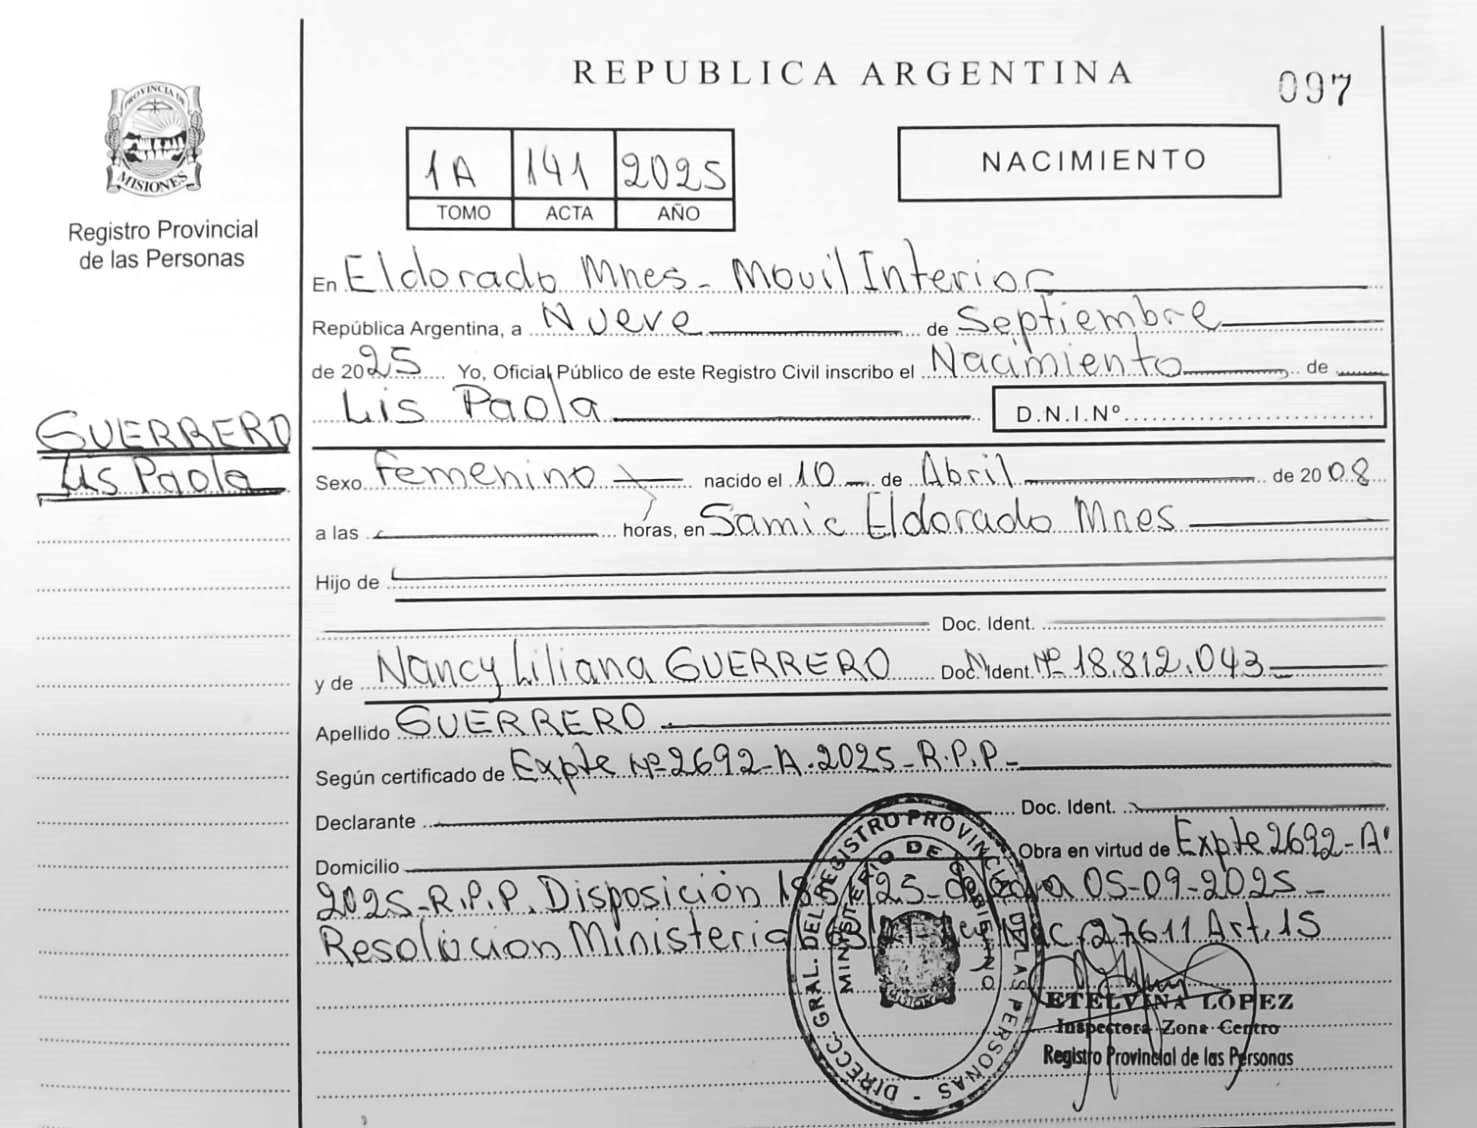 REPUBLICA ARGENTINA
097
PROVINCIA DE
MISIONES
Registro Provincial
de las Personas
1A 141 2025
TOMO ACTA AÑO
NACIMIENTO
En Eldorado Mnes - Movil Interior
República Argentina, a Nueve de Septiembre
de 2025 Yo, Oficial Público de este Registro Civil inscribo el Nacimiento de
Lis Paola D.N.I.Nº
GUERRERO
Lis Paola
Sexo Femenino nacido el 10 de Abril de 2008
a las horas, en Samic Eldorado Mnes
Hijo de
Doc. Ident.
y de Nancy Liliana GUERRERO Doc. Ident. Nº 18.812.043
Apellido GUERRERO
Según certificado de Expte Nº 2692-A-2025-R.P.P-
Declarante Doc. Ident.
Domicilio Obra en virtud de Expte 2692-A-
2025-R.P.P. Disposición 05-09-2025-
Resolución Ministerial 27611 Art. 15
DIRECC. GRAL. DEL REGISTRO PROVINCIAL DE LAS PERSONAS
MINISTERIO DE GOBIERNO
MISIONES
ETELVINA LOPEZ
Inspectora Zona Centro
Registro Provincial de las Personas